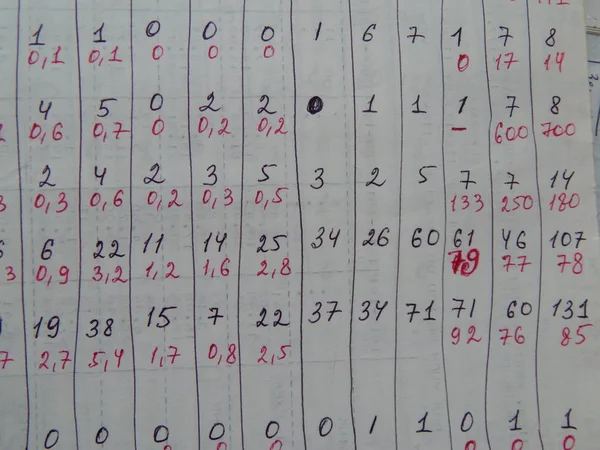 1 1 0 0 0 1 6 7 1 7 8
0,1 0,1 0 0 0 0 17 14
4 5 0 2 2 0 1 1 1 7 8
0,6 0,7 0 0,2 0,2 – 600 700
2 4 2 3 5 3 2 5 7 7 14
3 0,3 0,6 0,2 0,3 0,5 133 250 180
6 22 11 14 25 34 26 60 61 46 107
3 0,9 3,2 1,2 1,6 2,8 79 77 78
19 38 15 7 22 37 34 71 71 60 131
7 2,7 5,4 1,7 0,8 2,5 92 76 85
0 0 0 0 0 0 1 1 0 1 1
0 0 0